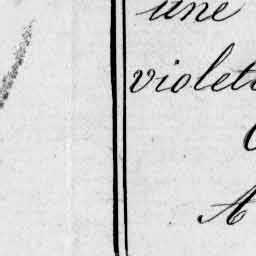 une
violet
A